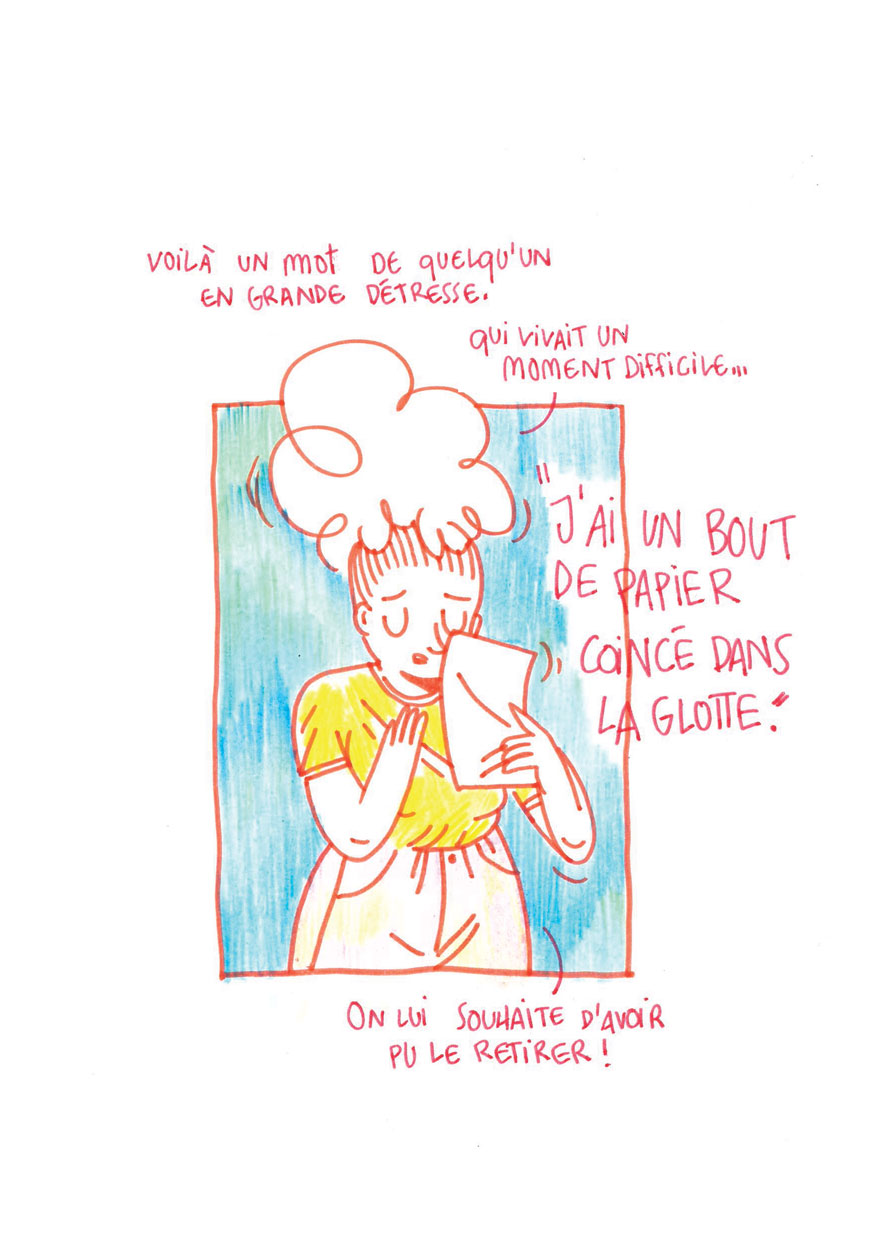 VOILÀ UN MOT DE QUELQU'UN
EN GRANDE DÉTRESSE.
QUI VIVAIT UN
MOMENT DIFFICILE...
"J'AI UN BOUT
DE PAPIER
COINCÉ DANS
LA GLOTTE."
ON LUI SOUHAITE D'AVOIR
PU LE RETIRER !